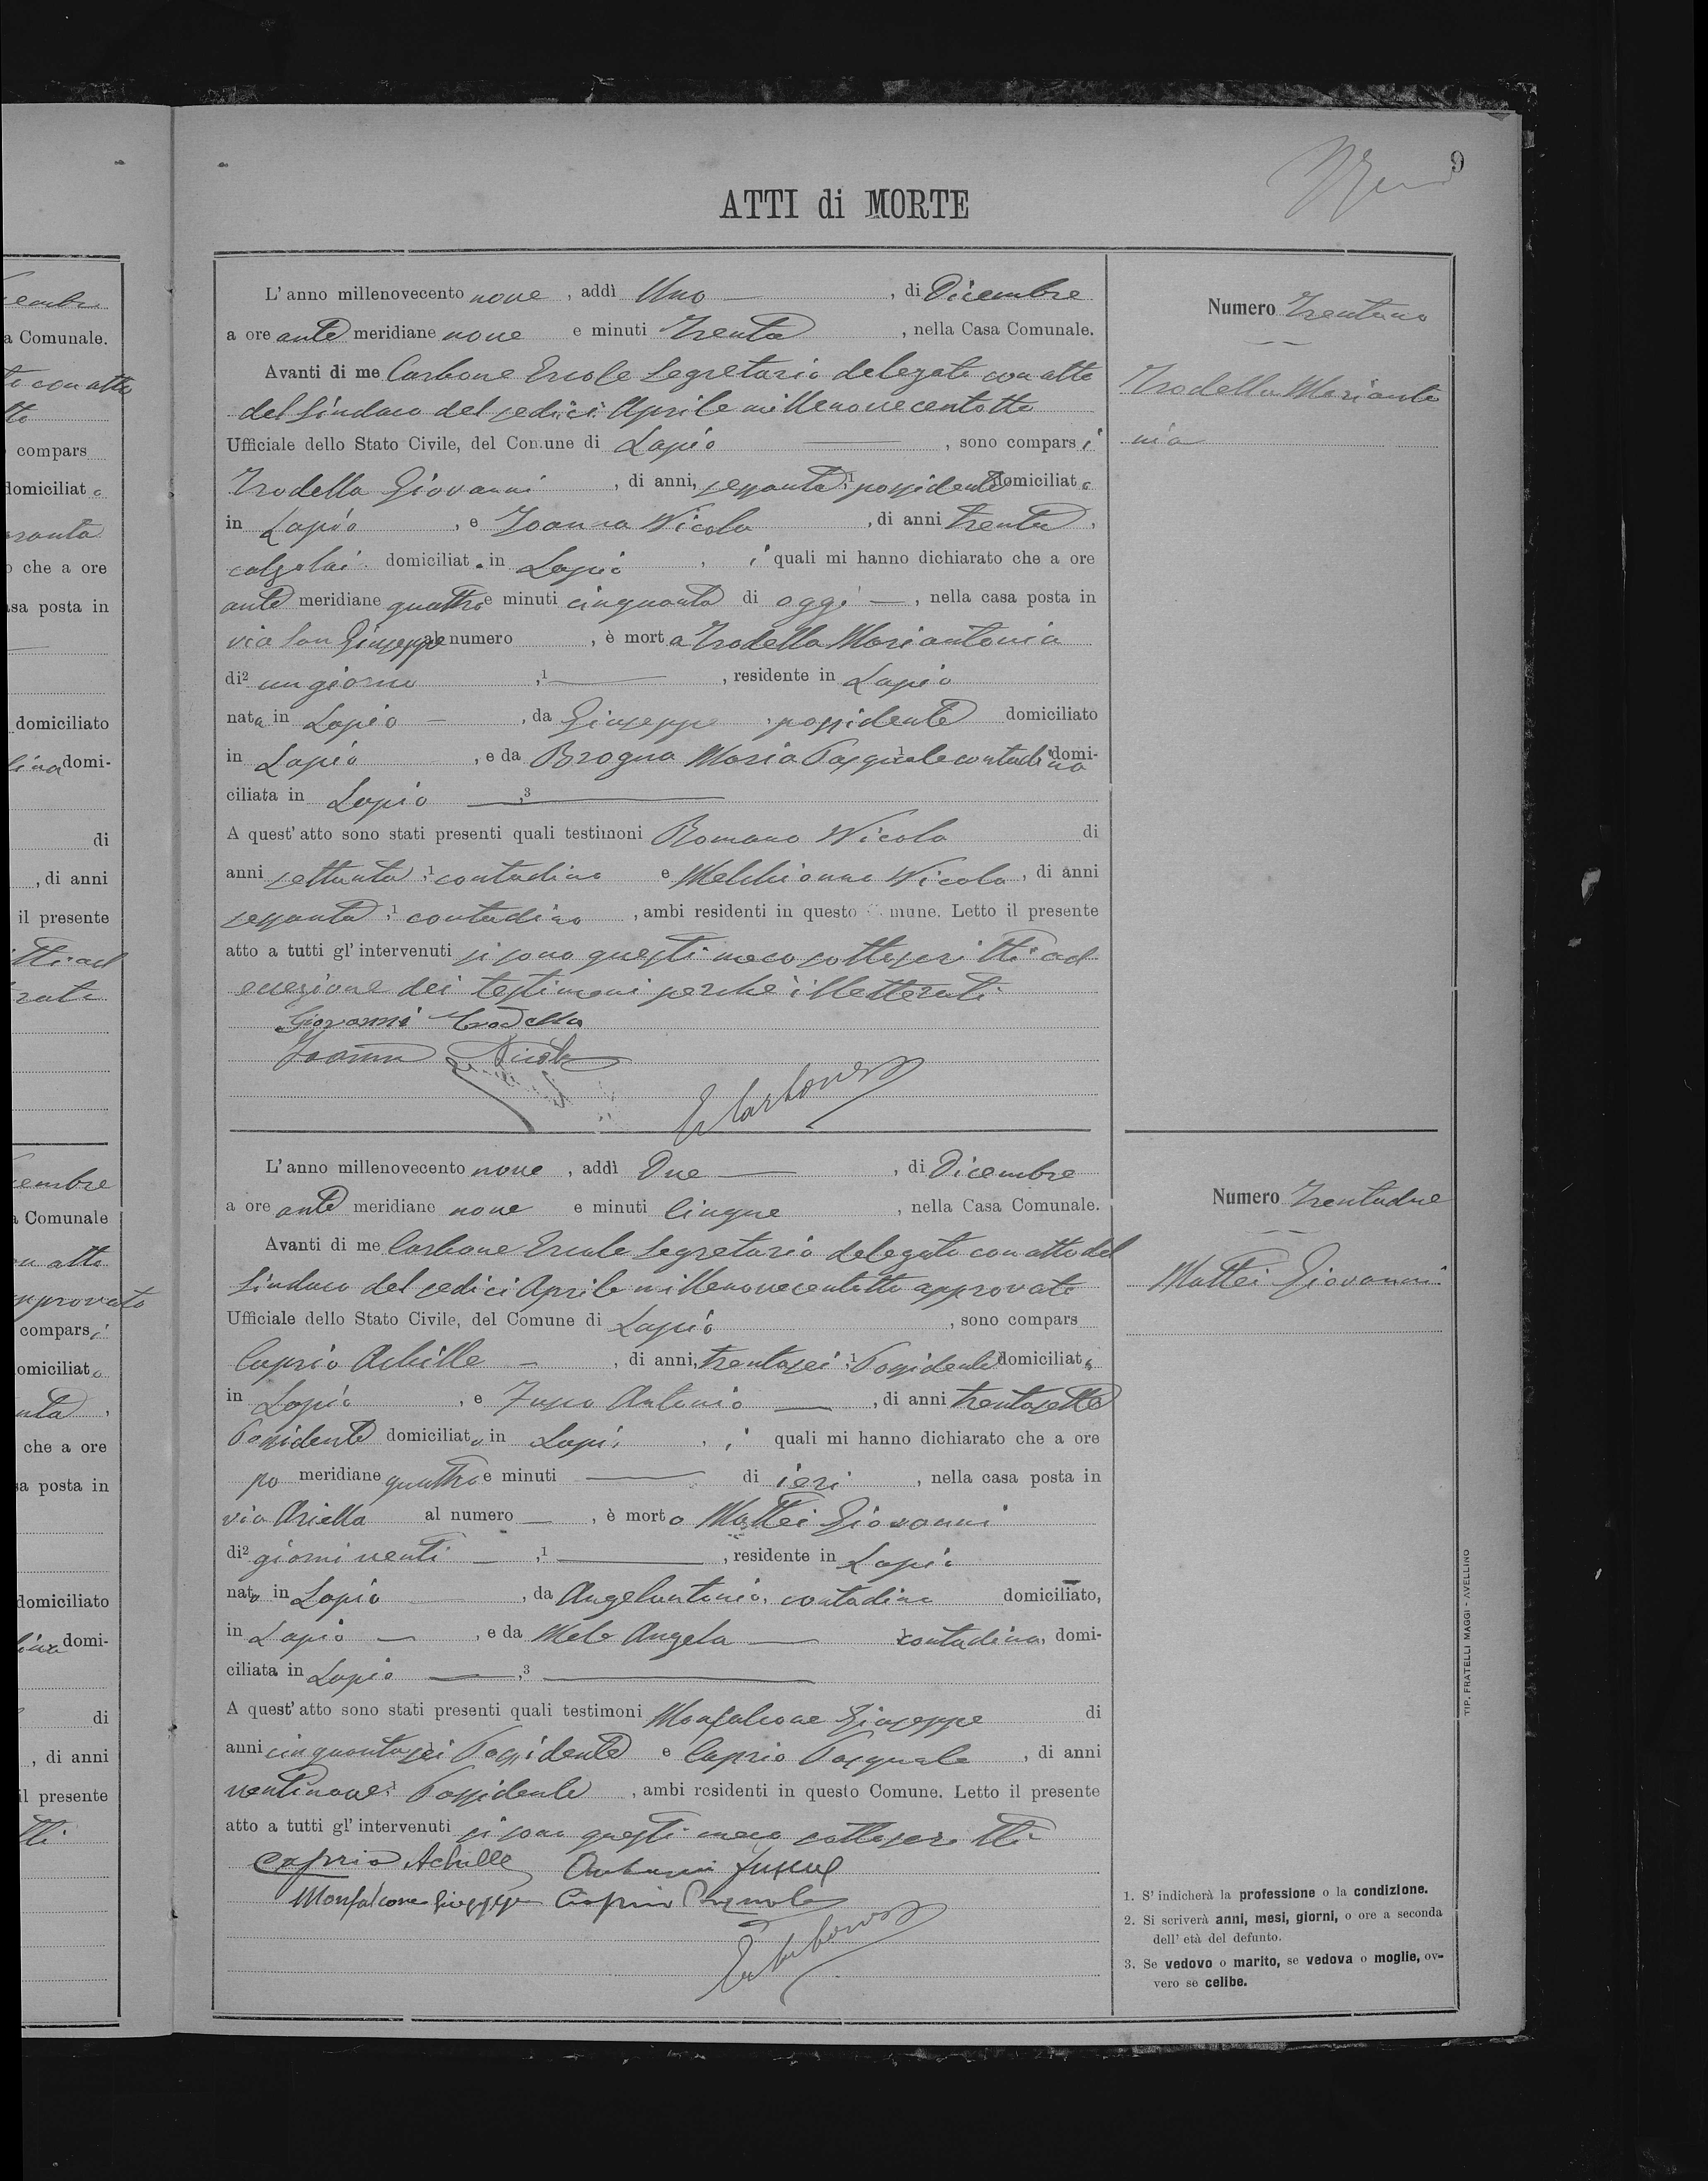 9
ATTI di MORTE
L'anno millenovecento nove, addì Uno, di Dicembre
a ore ante meridiane nove e minuti Trenta, nella Casa Comunale.
Avanti di me Carbone Ercole Segretario delegato con atto
del Sindaco del sedici Aprile millenovecentotto
Ufficiale dello Stato Civile, del Comune di Lapio, sono comparsi
Trodella Giovanni, di anni, sessanta,¹ possidente domiciliato
in Lapio, e Joanna Nicola, di anni trenta,
calzolai domiciliato in Lapio, i quali mi hanno dichiarato che a ore
ante meridiane quattro e minuti cinquanta di oggi, nella casa posta in
via San Giuseppe al numero, è morta Trodella Mariantonia
di² un giorno,¹ residente in Lapio
nata in Lapio, da Giuseppe, possidente domiciliato
in Lapio, e da Brogna Maria Pasquale ¹ contadina domi-
ciliata in Lapio ,³
A quest'atto sono stati presenti quali testimoni Romano Nicola di
anni settanta,¹ contadino e Melchionna Nicola, di anni
sessanta,¹ contadino, ambi residenti in questo Comune. Letto il presente
atto a tutti gl'intervenuti si sono questi meco sottoscritti ad
eccezione dei testimoni perché illetterati
Giovanni Trodella
Joanna Nicola
E Carbone
Numero Trentuno
Trodella Marianto
nia
L'anno millenovecento nove, addì Due, di Dicembre
a ore ante meridiane nove e minuti Cinque, nella Casa Comunale.
Avanti di me Carbone Ercole Segretario delegato con atto del
Sindaco del sedici Aprile millenovecentotto approvato
Ufficiale dello Stato Civile, del Comune di Lapio, sono compars
Caprio Achille, di anni, trentasei,¹ Possidente domiciliato
in Lapio, e Fusco Antonio, di anni trentasette
Possidente domiciliato in Lapio, i quali mi hanno dichiarato che a ore
po meridiane quattro e minuti di ieri, nella casa posta in
via Ariella al numero, è morto Mattei Giovanni
di² giorni venti,¹ residente in Lapio
nato in Lapio, da Angelantonio, contadino domiciliato,
in Lapio, e da Mele Angela ¹ contadina, domi-
ciliata in Lapio ,³
A quest'atto sono stati presenti quali testimoni Monfalcone Giuseppe di
anni cinquantasei Possidente e Caprio Pasquale, di anni
ventinove,¹ Possidente, ambi residenti in questo Comune. Letto il presente
atto a tutti gl'intervenuti si sono questi meco sottoscritti
Caprio Achille Antonio Fusco
Monfalcone Giuseppe Caprio Pasquale
E Carbone
Numero Trentadue
Mattei Giovanni
1. S'indicherà la professione o la condizione.
2. Si scriverà anni, mesi, giorni, o ore a seconda
dell'età del defunto.
3. Se vedovo o marito, se vedova o moglie, ov-
vero se celibe.
TIP. FRATELLI MAGGI - AVELLINO